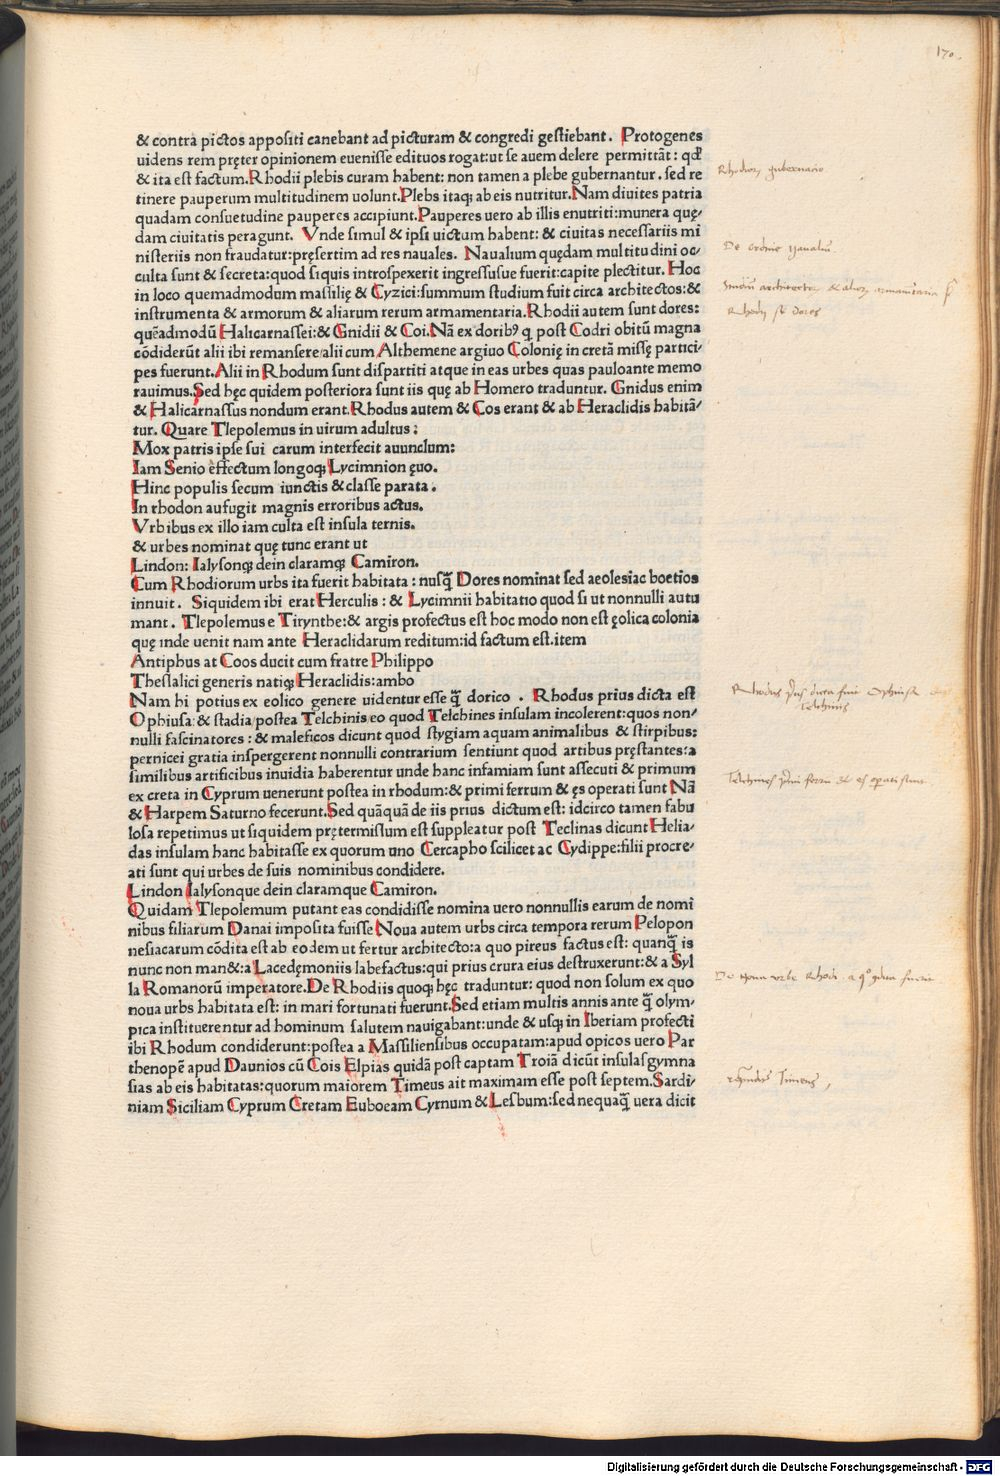 170.
& contra pictos appositi canebant ad picturam & congredi gestiebant. Protogenes
uidens rem pręter opinionem euenisse edituos rogat:ut se auem delere permittāt: qđ
& ita est factum.Rhodii plebis curam habent: non tamen a plebe gubernantur. sed re
tinere pauperum multitudinem uolunt.Plebs itaq; ab eis nutritur.Nam diuites patria
quadam consuetudine pauperes accipiunt.Pauperes uero ab illis enutriti:munera quę-
dam ciuitatis peragunt. Vnde simul & ipsi uictum habent: & ciuitas necessariis mi
nisteriis non fraudatur:pręsertim ad res nauales. Naualium quędam multitudini oc-
culta sunt & secreta:quod siquis introspexerit ingressusue fuerit:capite plectitur. Hoc
in loco quemadmodum massilię & Cyzici:summum studium fuit circa architectos:&
instrumenta & armorum & aliarum rerum armamentaria.Rhodii autem sunt dores:
quēadmodū Halicarnassei:& Gnidii & Coi.Nā ex dorib⁹ q post Codri obitū magna
cōdiderūt alii ibi remansere/alii cum Althemene argiuo Colonię in cretā missę partici-
pes fuerunt.Alii in Rhodum sunt dispartiti atque in eas urbes quas pauloante memo
rauimus.Sed hęc quidem posteriora sunt iis quę ab Homero traduntur. Gnidus enim
& Halicarnassus nondum erant.Rhodus autem & Cos erant & ab Heraclidis habitā-
tur. Quare Tlepolemus in uirum adultus:
Mox patris ipse sui carum interfecit auunclum:
Iam Senio effectum longoq; Lycimnion ęuo.
Hinc populis secum iunctis & classe parata.
In rhodon aufugit magnis erroribus actus.
Vrbibus ex illo iam culta est insula ternis.
& urbes nominat quę tunc erant ut
Lindon: Ialysonq; dein claramq; Camiron.
Cum Rhodiorum urbs ita fuerit habitata : nusq̄ Dores nominat sed aeolesiac boetios
innuit. Siquidem ibi erat Herculis : & Lycimnii habitatio quod si ut nonnulli autu
mant. Tlepolemus e Tirynthe:& argis profectus est hoc modo non est ęolica colonia
quę inde uenit nam ante Heraclidarum reditum:id factum est.item
Antiphus at Coos ducit cum fratre Philippo
Thessalici generis natiq; Heraclidis:ambo
Nam hi potius ex eolico genere uidentur esse q̄ dorico . Rhodus prius dicta est
Ophiusa:& stadia/postea Telchinis eo quod Telchines insulam incolerent:quos non-
nulli fascinatores : & maleficos dicunt quod stygiam aquam animalibus & stirpibus:
pernicei gratia inspergerent nonnulli contrarium sentiunt quod artibus pręstantes:a
similibus artificibus inuidia haberentur unde hanc infamiam sunt assecuti & primum
ex creta in Cyprum uenerunt postea in rhodum:& primi ferrum & ęs operati sunt Nā
& Harpem Saturno fecerunt.Sed quāquā de iis prius dictum est: idcirco tamen fabu
losa repetimus ut siquidem prętermissum est suppleatur post Teclinas dicunt Helia-
das insulam hanc habitasse ex quorum uno Cercapho scilicet ac Cydippe:filii procre-
ati sunt qui urbes de suis nominibus condidere.
Lindon Ialysonque dein claramque Camiron.
Quidam Tlepolemum putant eas condidisse nomina uero nonnullis earum de nomi
nibus filiarum Danai imposita fuisse Noua autem urbs circa tempora rerum Pelopon
nesiacarum cōdita est ab eodem ut fertur architecto:a quo pireus factus est: quanq̄ is
nunc non man&:a Lacedęmoniis labefactus:qui prius crura eius destruxerunt:& a Syl
la Romanorū imperatore.De Rhodiis quoq; hęc traduntur: quod non solum ex quo
noua urbs habitata est: in mari fortunati fuerunt.Sed etiam multis annis ante q̄ olym-
pica instituerentur ad hominum salutem nauigabant:unde & usq; in Iberiam profecti
ibi Rhodum condiderunt:postea a Massiliensibus occupatam:apud opicos uero Par
thenopē apud Daunios cū Cois Elpias quidā post captam Troiā dicūt insulas gymna
sias ab eis habitatas:quorum maiorem Timeus ait maximam esse post septem.Sardi-
niam Siciliam Cyprum Cretam Euboeam Cyrnum & Lesbum:sed nequaq̄ uera dicit
De ordine Naualium
Rhodii st dores
Telchinis
Timeus
Digitalisierung gefördert durch die Deutsche Forschungsgemeinschaft - DFG